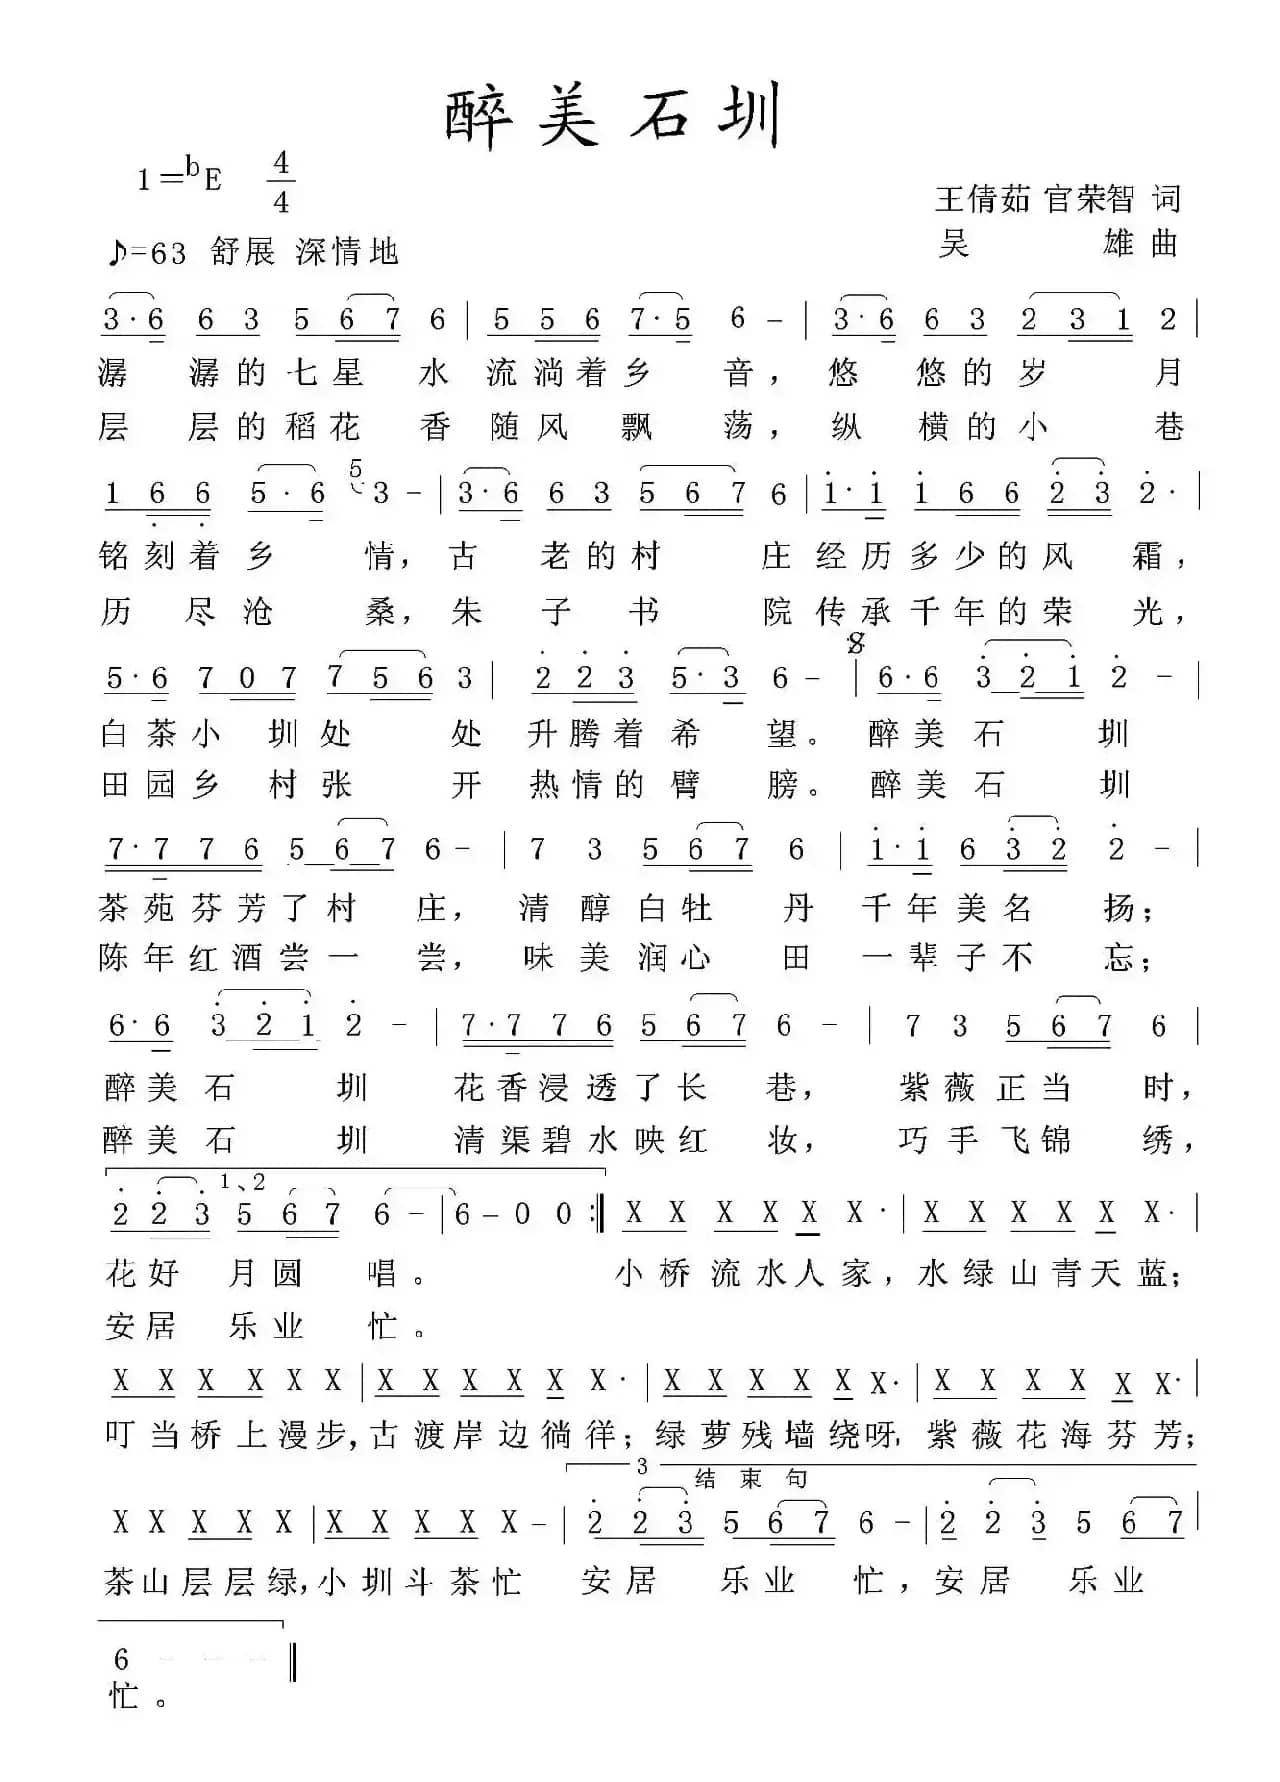 醉美石圳
1=bE 4/4
王倩茹 官荣智 词
♪=63 舒展 深情地
吴 雄 曲
3·6 6 3 5 6 7 6 | 5 5 6 7·5 6 - | 3·6 6 3 2 3 1 2 |
潺 潺的七星 水 流淌着乡 音，悠 悠的岁 月
层 层的稻花 香 随风 飘 荡，纵 横的小 巷
1 6 6 5·6 5 3 - | 3·6 6 3 5 6 7 6 | 1·1 1 6 6 2 3 2· |
铭刻着乡 情，古 老的村 庄经历多少的风 霜，
历 尽沧 桑，朱 子 书 院传承千年的荣 光，
5·6 7 0 7 7 5 6 3 | 2 2 3 5·3 6 - | 6·6 3 2 1 2 - |
白茶小 圳处 处 升腾着希 望。醉美石 圳
田园乡 村张 开 热情的臂 膀。醉美石 圳
7·7 7 6 5 6 7 6 - | 7 3 5 6 7 6 | 1·1 6 3 2 2 - |
茶苑芬芳了村 庄，清醇白牡 丹 千年美名 扬；
陈年红酒尝一 尝，味美润心 田 一辈子不 忘；
6·6 3 2 1 2 - | 7·7 7 6 5 6 7 6 - | 7 3 5 6 7 6 |
醉美石 圳 花香浸透了长 巷，紫薇正当 时，
醉美石 圳 清渠碧水映红 妆，巧手飞锦 绣，
1、2
2 2 3 5 6 7 6 - | 6 - 0 0 :‖ X X X X X X· | X X X X X X· |
花好 月圆 唱。 小桥流水人家，水绿山青天蓝；
安居 乐业 忙。
X X X X X X | X X X X X X· | X X X X X X· | X X X X X X· |
叮当桥上漫步，古渡岸边徜徉；绿萝残墙绕呀，紫薇花海芬芳；
3 结束句
X X X X X | X X X X X - | 2 2 3 5 6 7 6 - | 2 2 3 5 6 7 |
茶山层层绿，小圳斗茶忙 安居 乐业 忙，安居 乐业
6 - - - ‖
忙。